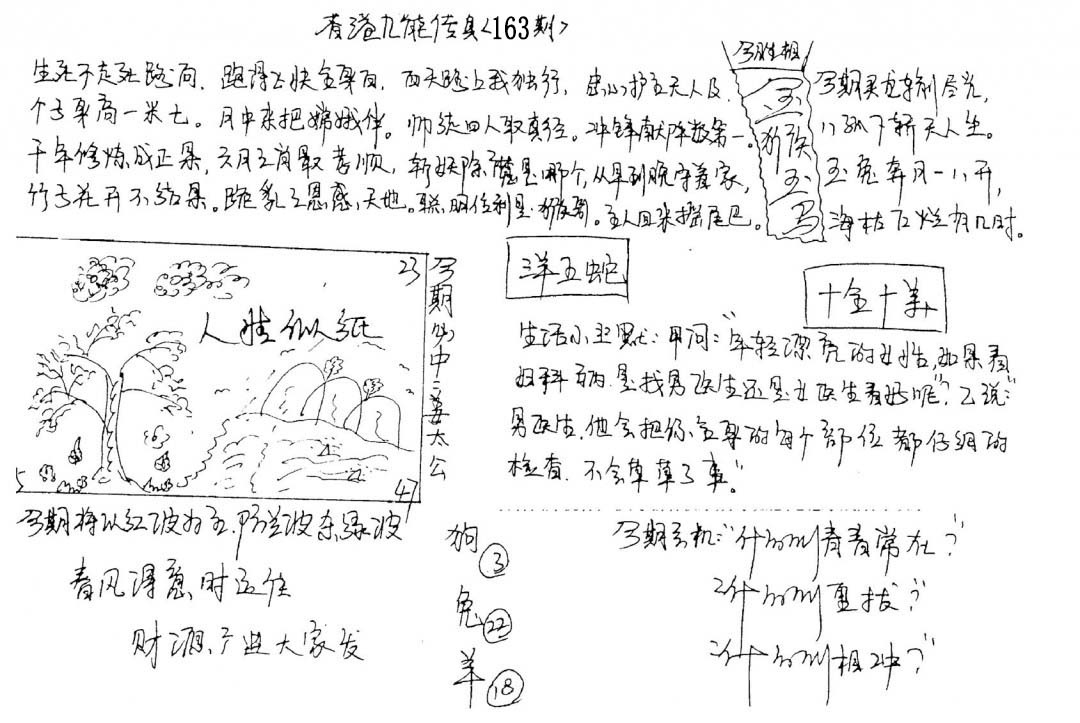 香港九龍传真<163期>
生死不走死路向. 跑得飞快全身白. 西天路上我独行, 忠心护主无人及.
个子身高一米七。月中来把嫦娥伴。师徒四人取真经。冲锋献阵数第一。
千年修炼成正果, 六月之肖最孝顺, 斩妖除魔是哪个, 从早到晚守着家,
竹子花开不结果。跪乳之恩感天地。聪明伶利是猴哥。主人回来摇尾巴。
今胜相
玉
猴
玉
马
今期
八 天人生。
玉兔奔月一八开,
海枯石烂有几时。
23
人 似纸
5
47
今期必中:姜太公
洋五蛇
十全十美
生活小幽默:甲问:“年轻漂亮的女性,如果看
妇科病.是找男医生还是女医生看好呢”?乙说:“
男医生.他会把你全身的每个部位都仔细的
检查.不会草草了事。”
今期将以红波为主.防兰波杂绿波
春风得意时运佳
财源产进大家发
狗 ③
兔 ㉒
羊 ⑱
今期玄机:“什么叫青春常在?”
什么叫 拔?”
什么叫相冲?”